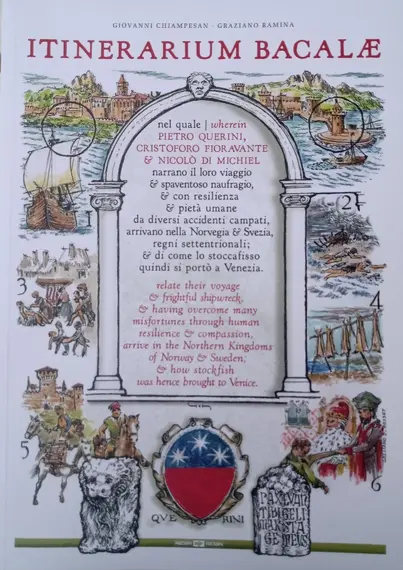 GIOVANNI CHIAMPESAN · GRAZIANO RAMINA
ITINERARIUM BACALÆ
nel quale | wherein
PIETRO QUERINI,
CRISTOFORO FIORAVANTE
& NICOLÒ DI MICHIEL
narrano il loro viaggio
& spaventoso naufragio,
& con resilienza
& pietà umane
da diversi accidenti campati,
arrivano nella Norvegia & Svezia,
regni settentrionali;
& di come lo stoccafisso
quindi si portò a Venezia.
relate their voyage
& frightful shipwreck,
& having overcome many
misfortunes through human
resilience & compassion,
arrive in the Northern Kingdoms
of Norway & Sweden;
& how stockfish
was hence brought to Venice.
1
2
3
4
5
6
QVE RINI
PAX TVAN
TIBI GELI
MAR STA
GE MEVS